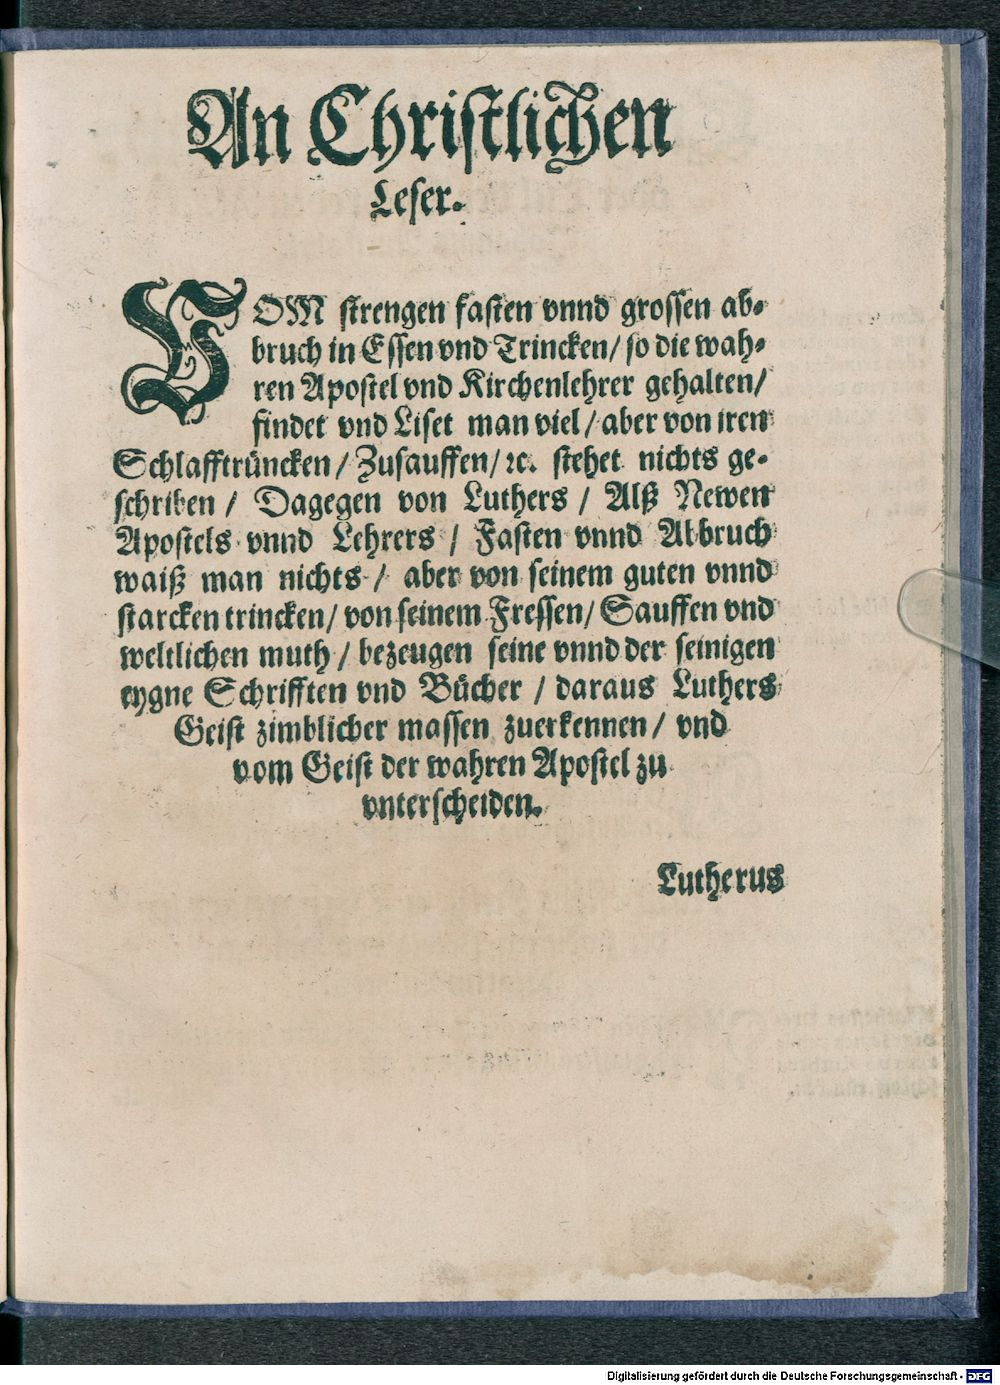 An Christlichen
Leser.
VOM strengen fasten vnnd grossen ab-
bruch in Essen vnd Trincken/ so die wah-
ren Apostel vnd Kirchenlehrer gehalten/
findet vnd Liset man viel/ aber von iren
Schlafftrüncken/ Zusauffen/ ꝛc. stehet nichts ge-
schriben/ Dagegen von Luthers/ Alß Newen
Apostels vnnd Lehrers/ Fasten vnnd Abbruch
waiß man nichts/ aber von seinem guten vnnd
starcken trincken/ von seinem Fressen/ Sauffen vnd
weltlichen muth/ bezeugen seine vnnd der seinigen
eygne Schrifften vnd Bücher/ daraus Luthers
Geist zimblicher massen zuerkennen/ vnd
vom Geist der wahren Apostel zu
vnterscheiden.
Lutherus
Digitalisierung gefördert durch die Deutsche Forschungsgemeinschaft - DFG